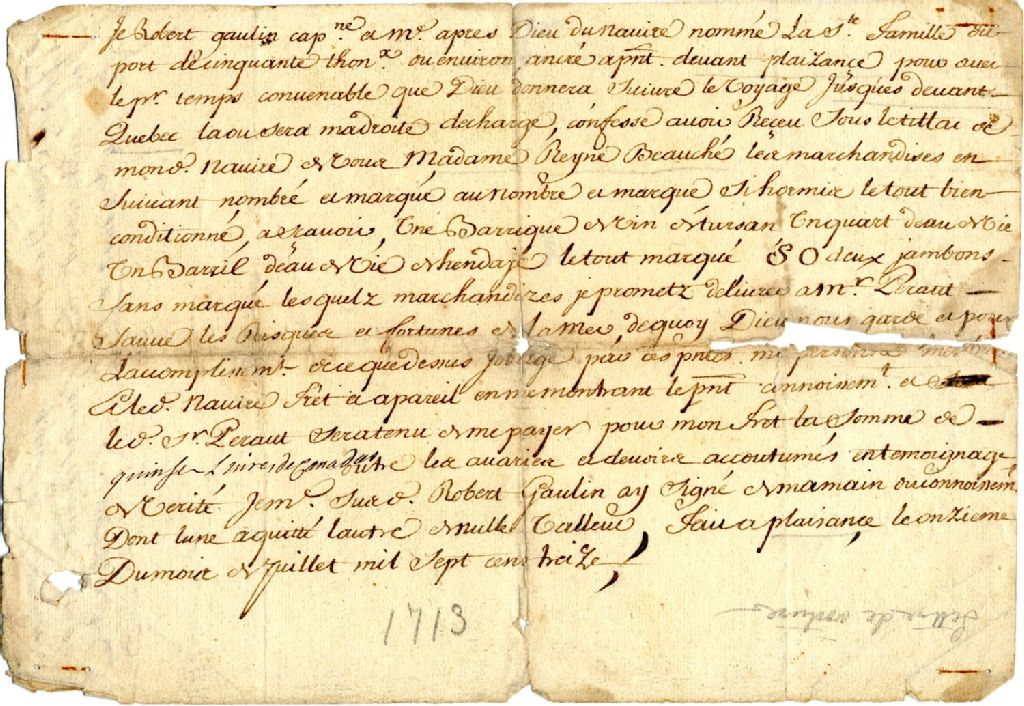 Je Robert gaulin cap.ne et Mr. apres Dieu du navire nommé La Ste. Famille du
port de cinquante thonx. ou environ ancré apnt. devant plaizance pour avec
le pr. temps convenable que Dieu donnera Suivre le Voyage Jusques devant
Quebec la ou sera ma droite decharge, confesse avoir Receu Sous le tillac de
mond. navire de Vous Madame Reyne Beauché les marchandises en
Suivant nombré et marqué au nombre et marque Si hormis le tout bien
conditionné, a Scavoir, Une Barrique de Vin de tursan Un quart d'eau de Vie
Un Barril d'eau de Vie de hendaje le tout marqué SO deux jambons
Sans marque les quelz marchandizes je prometz delivrer a Mr. Peraut
Sauve les Risques et fortunes de la mer de quoy Dieu nous garde et pour
L'acomplisemt. de ce que dessus J'oblige par ces pntes.
et led. navire Fret et apareil en me montrant le pnt connoissemt. et
led. Sr. Peraut Sera tenu de me payer pour mon Fret la Somme de
quinse Livres de outre les avaries et devoirs accoutumés en temoignage
de Verité Je Mr. Sur d. Robert Gaulin ay Signé de ma main connoissem.
Dont l'une aquitté l'autre de nulle Valleur, Fait a plaisance, le onzieme
Du mois de Juillet mil Sept cens treize
1713
Lettre de voiture